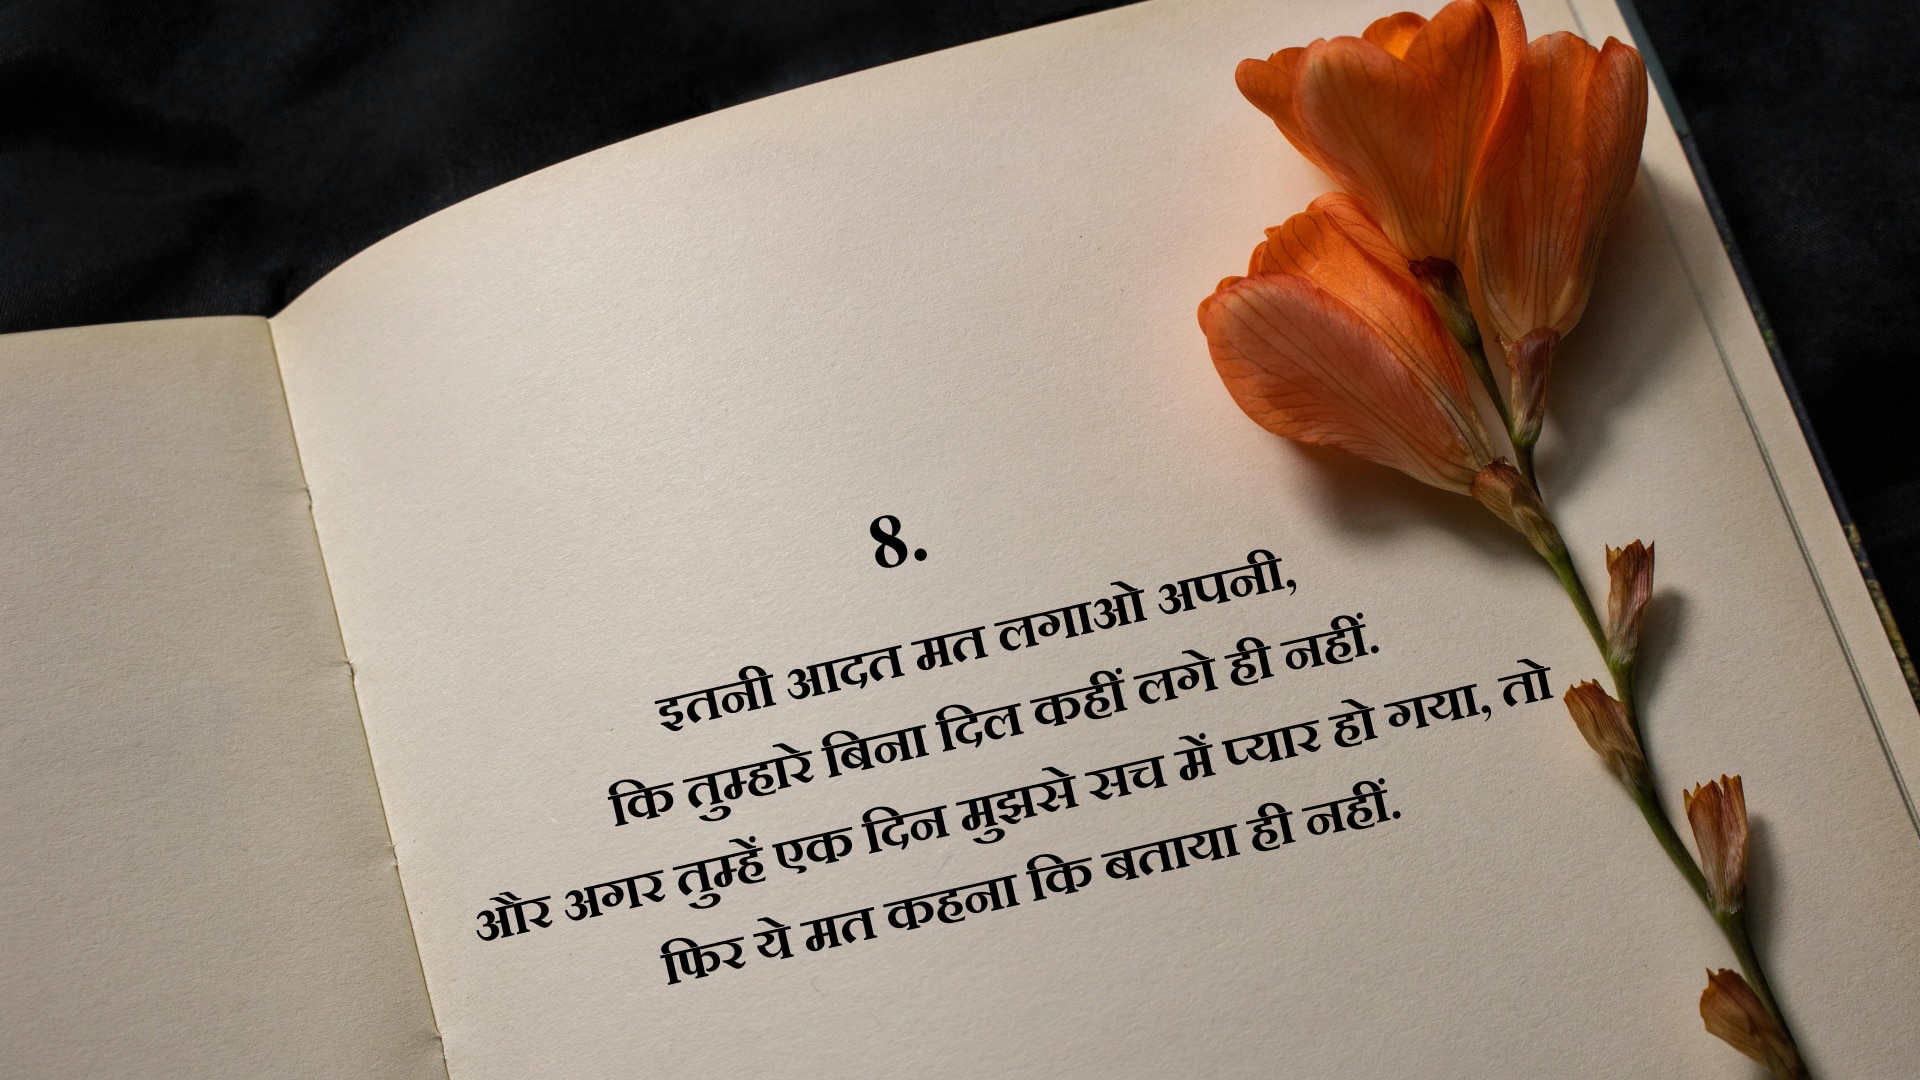 8.
इतनी आदत मत लगाओ अपनी,
कि तुम्हारे बिना दिल कहीं लगे ही नहीं.
और अगर तुम्हें एक दिन मुझसे सच में प्यार हो गया, तो
फिर ये मत कहना कि बताया ही नहीं.